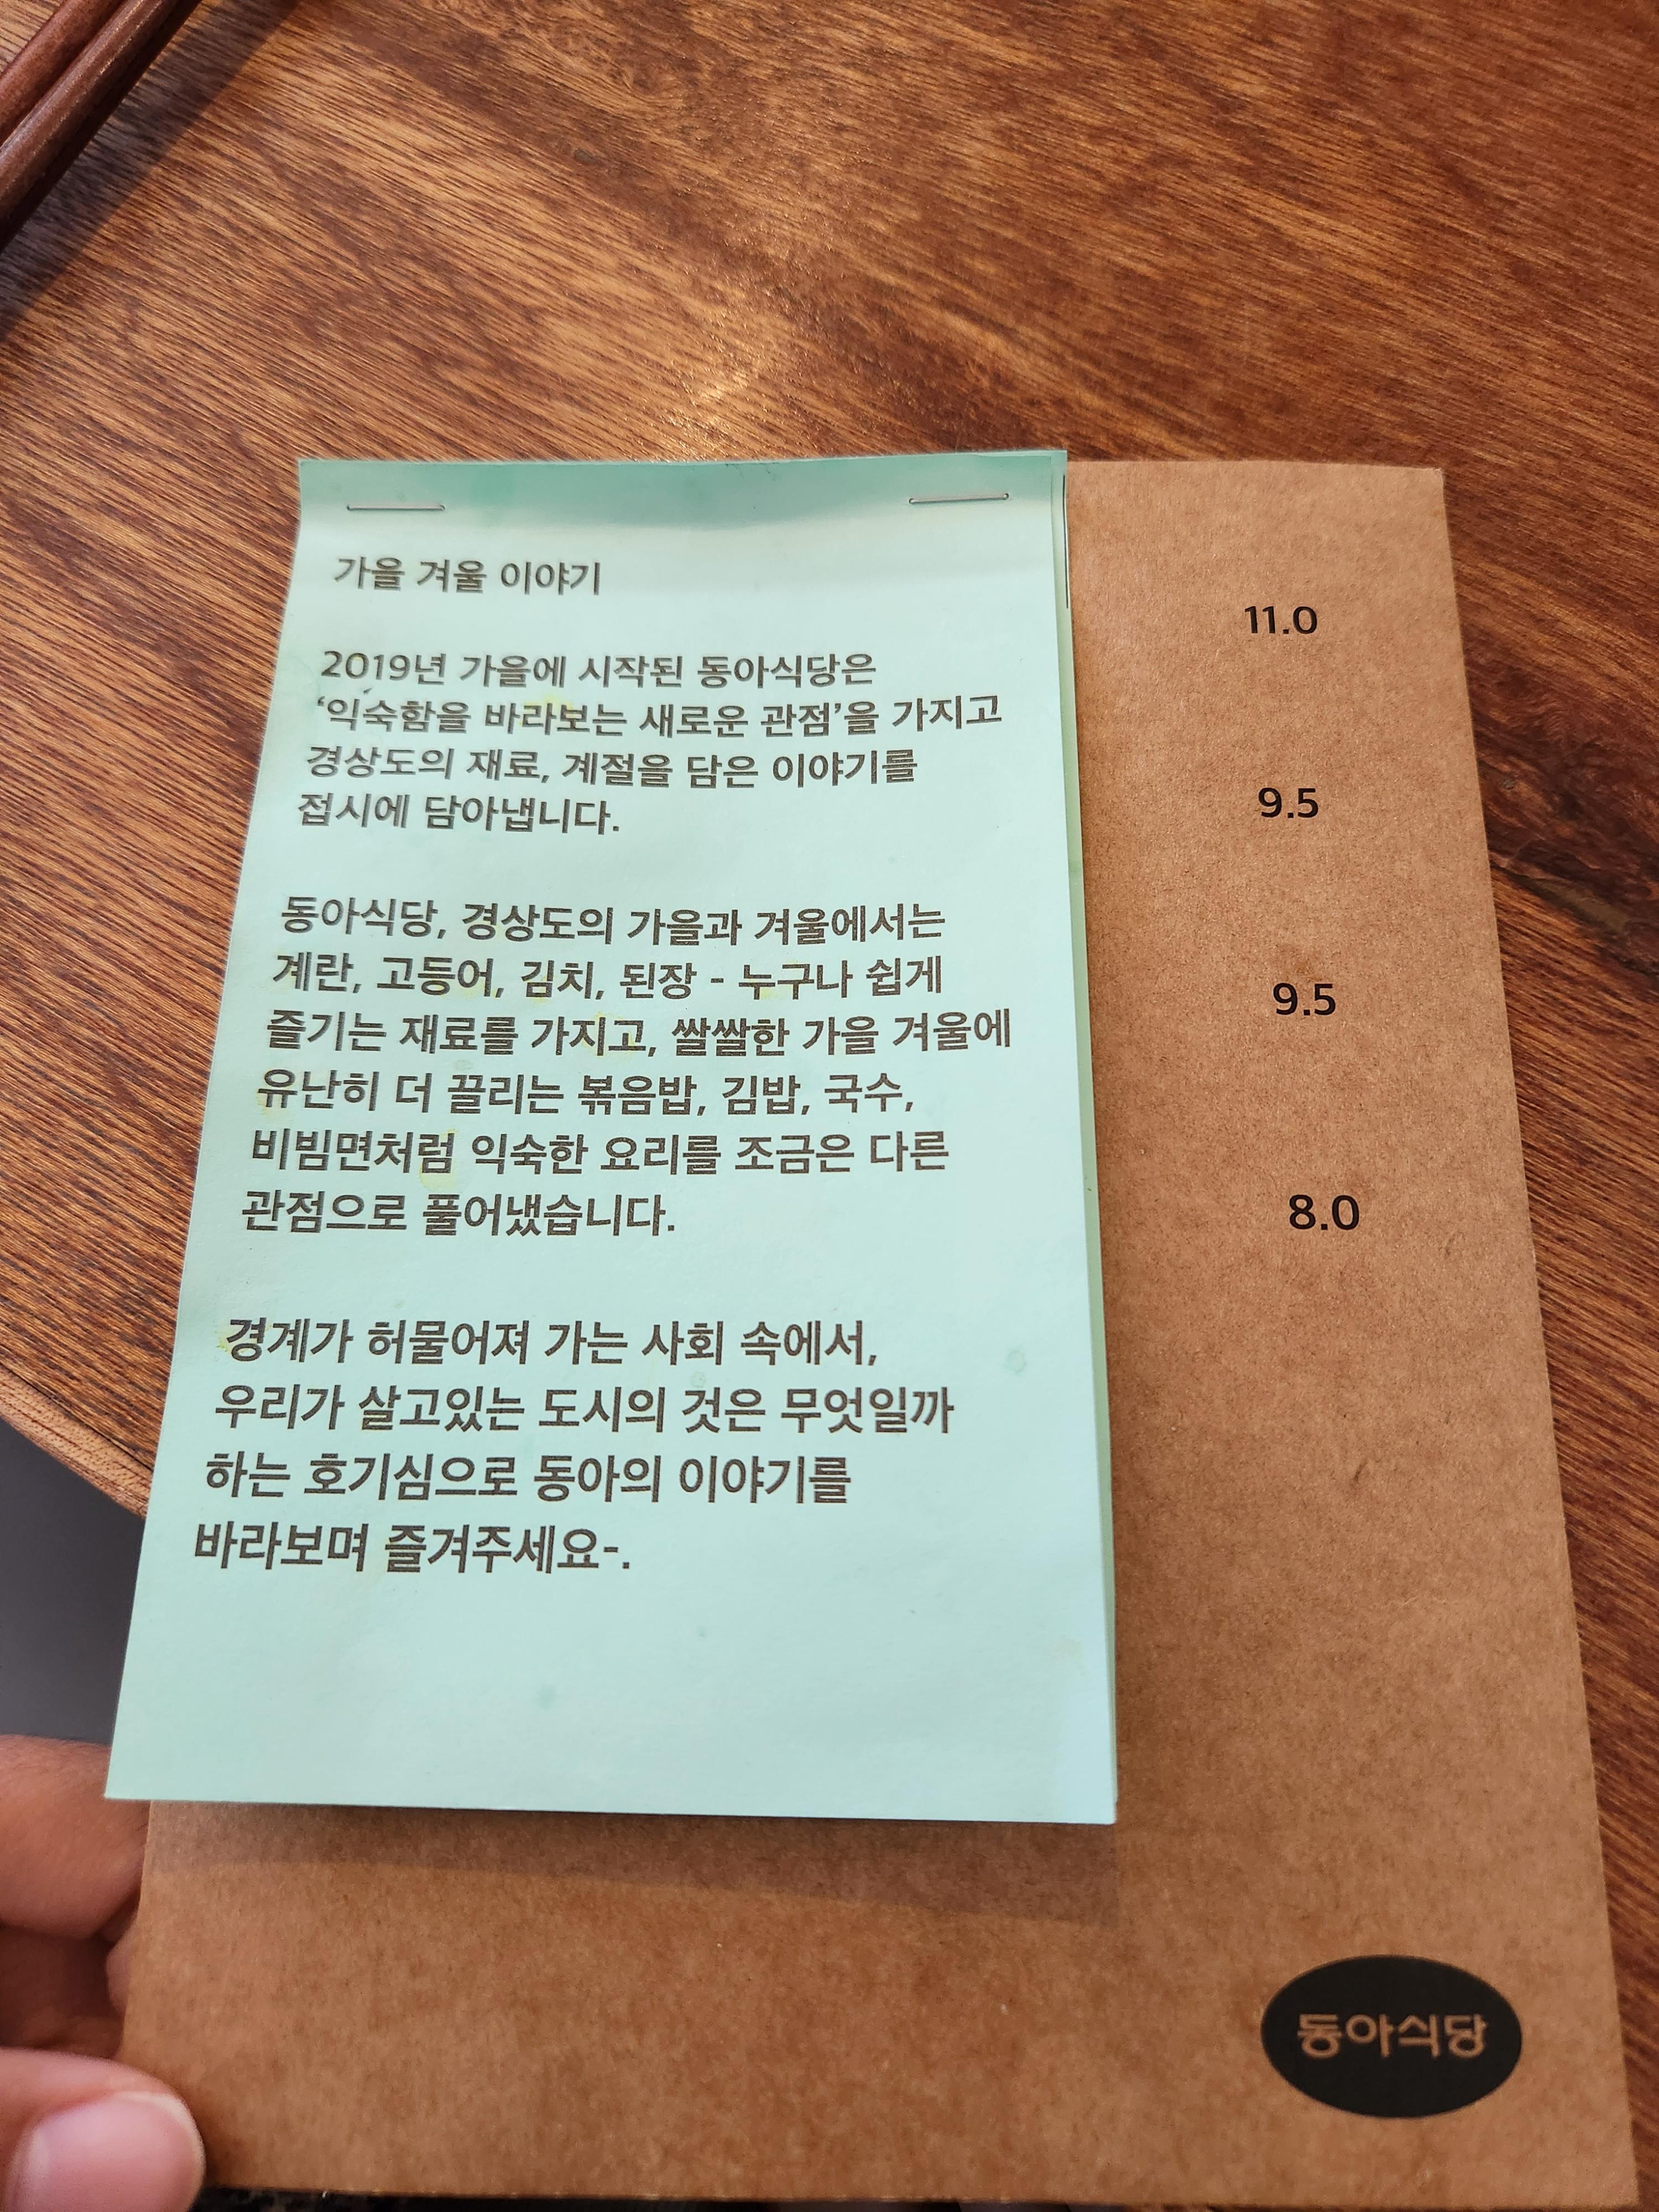 가을 겨울 이야기
2019년 가을에 시작된 동아식당은
‘익숙함을 바라보는 새로운 관점’을 가지고
경상도의 재료, 계절을 담은 이야기를
접시에 담아냅니다.
동아식당, 경상도의 가을과 겨울에서는
계란, 고등어, 김치, 된장 - 누구나 쉽게
즐기는 재료를 가지고, 쌀쌀한 가을 겨울에
유난히 더 끌리는 볶음밥, 김밥, 국수,
비빔면처럼 익숙한 요리를 조금은 다른
관점으로 풀어냈습니다.
경계가 허물어져 가는 사회 속에서,
우리가 살고있는 도시의 것은 무엇일까
하는 호기심으로 동아의 이야기를
바라보며 즐겨주세요-.
11.0
9.5
9.5
8.0
동아식당